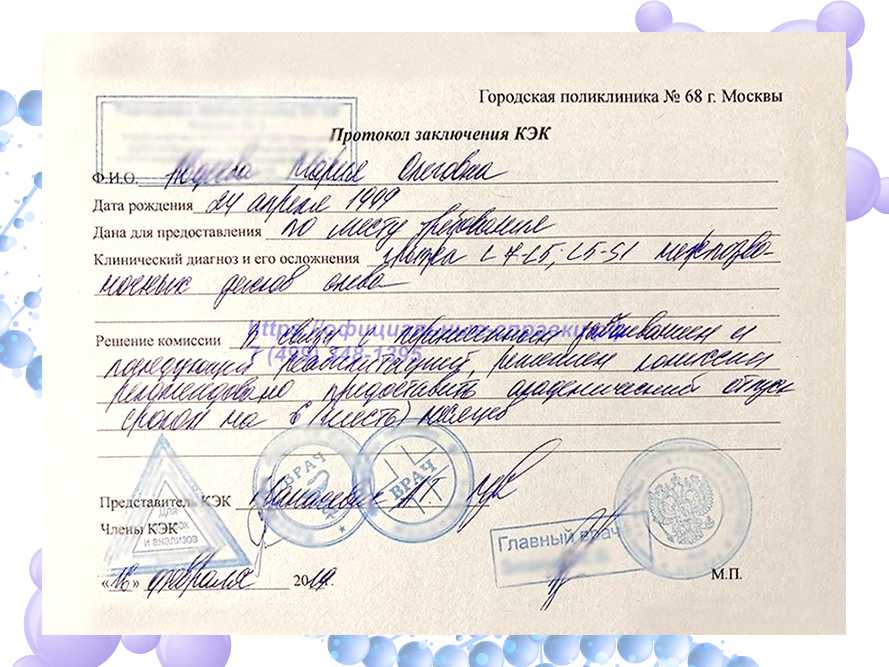 Городская поликлиника № 68 г. Москвы
Протокол заключения КЭК
Ф.И.О. Мария Олеговна
Дата рождения 24 апреля 1999
Дана для предоставления по месту требования
Клинический диагноз и его осложнения грыжа L5-S1 межпозво-
ночных дисков слева
https://официальные-справки
Решение комиссии В связи с перенесенным заболеванием и
7 (499) 348-1395
последующей реабилитацией, решением комиссии
рекомендовано предоставить академический отпуск
сроком на 6 (шесть) месяцев
ВРАЧ
ВРАЧ
Представитель КЭК
Для
Члены КЭК
и анализов
Главный врач
«16» февраля 2019г.
М.П.